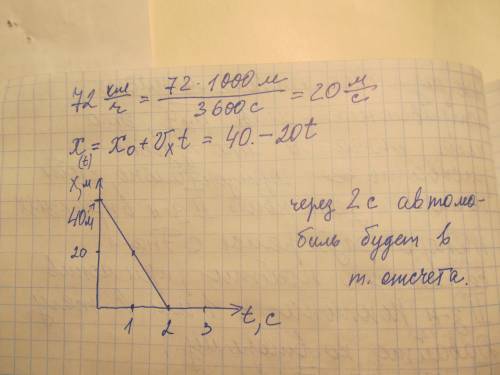 72 км/ч = 72·1000м / 3600с = 20 м/с
x(t) = x₀ + vₓt = 40.-20t
x,м
40м
20
1 2 3 t,с
через 2с автомо-
биль будет в
т. отсчета.